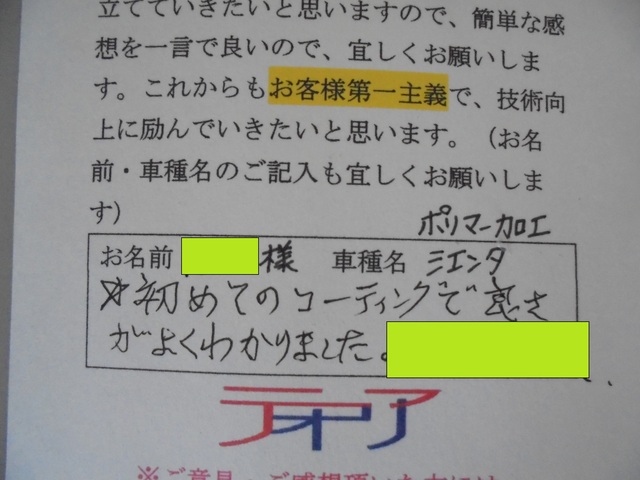 立てていきたいと思いますので、簡単な感
想を一言で良いので、宜しくお願いしま
す。これからもお客様第一主義で、技術向
上に励んでいきたいと思います。（お名
前・車種名のご記入も宜しくお願いしま
す）
ポリマー加工
お名前 様 車種名 シエンタ
初めてのコーティングで良さ
がよくわかりました。
テオリア
※ご意見・ご感想頂いた方には